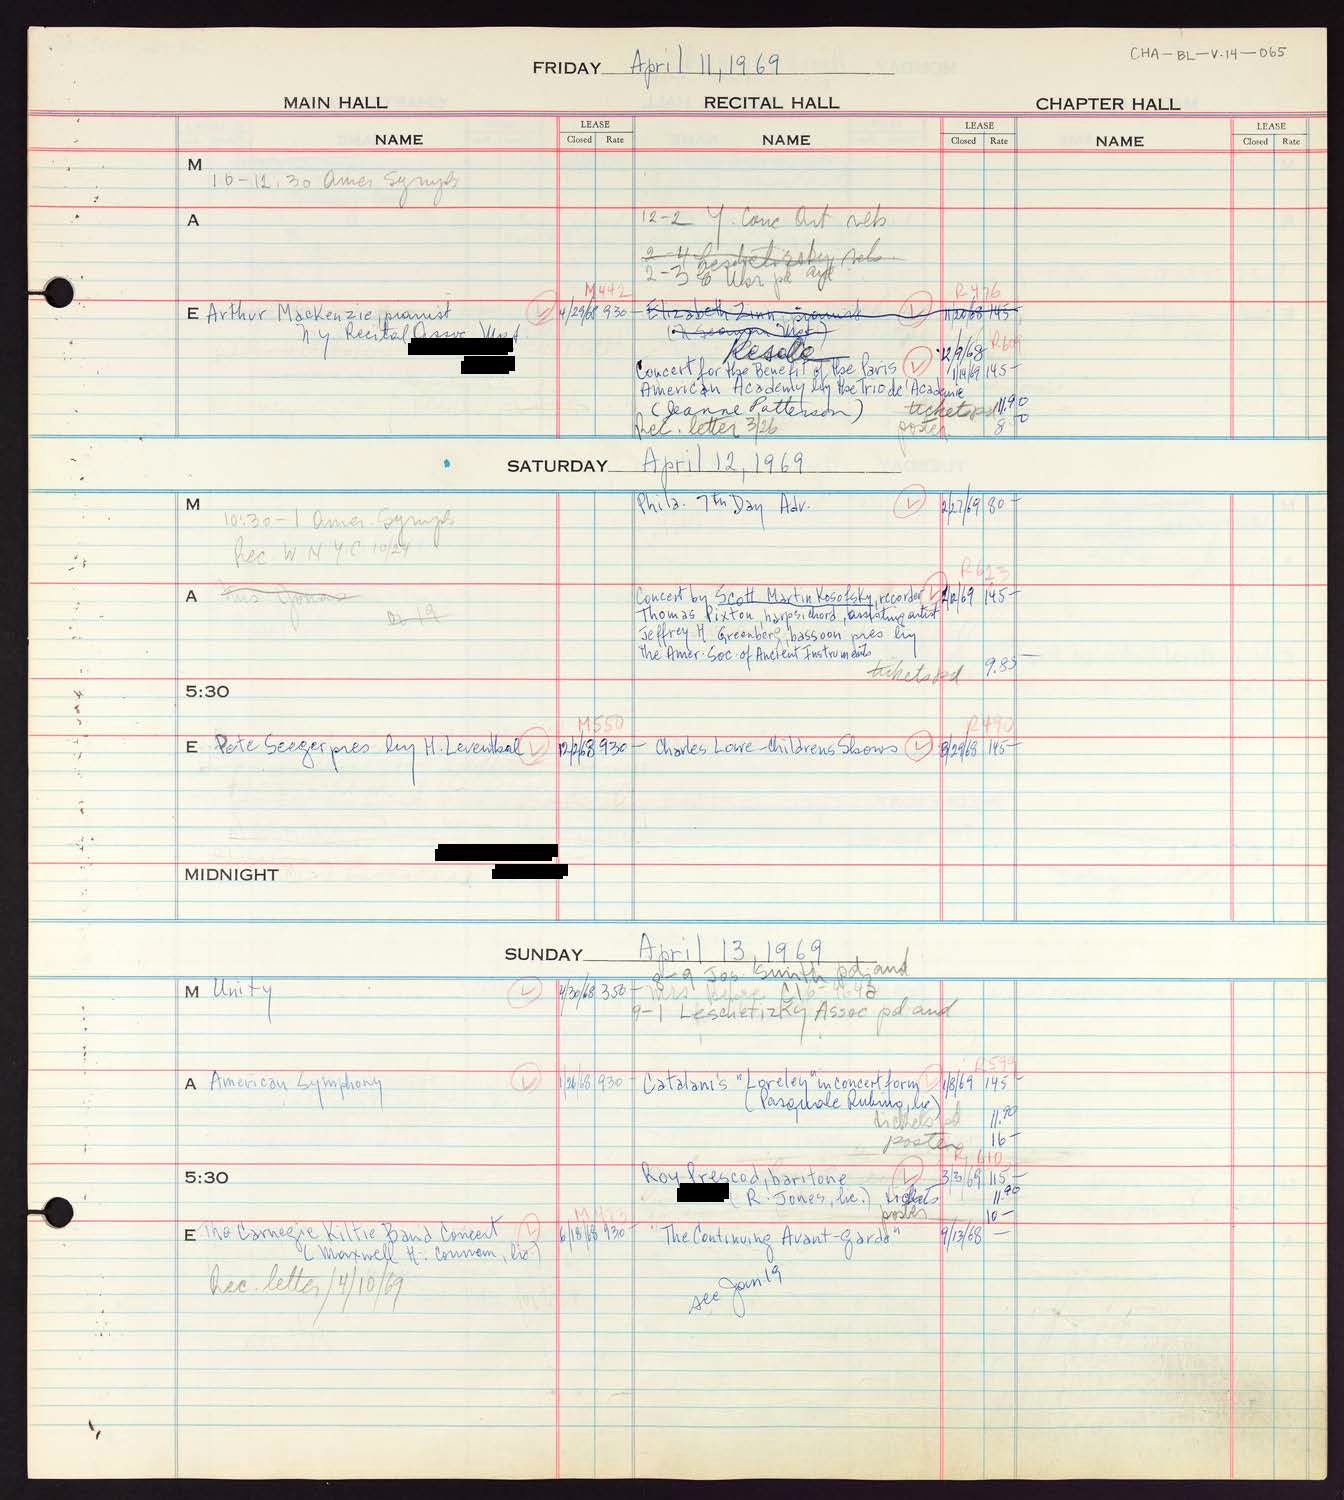 CHA-BL-V.14-065
FRIDAY April 11, 1969
MAIN HALL RECITAL HALL CHAPTER HALL
NAME LEASE Closed Rate NAME LEASE Closed Rate NAME LEASE Closed Rate
M
10-12:30 Amer Symph
A
12-2 Y. Conc Art reh
2-4 Leschetizsky reh.
2-3
M442 R476
E Arthur MacKenzie, pianist 4/29/68 930- Elizabeth Zinn, pianist 11/20/68 145-
N Y Recital Assoc. Mgt
Resale 12/9/68 R609
Concert for the Benefit of the Paris 1/14/69 145-
American Academy by the Trio de Academie
(Jeanne Patterson) tickets pd 11.90
Rec. letter 3/26 poster 8-
SATURDAY April 12, 1969
M Phila. 7th Day Adv. 2/27/69 80-
10:30-1 Amer. Symph
Rec W N Y C 10/24
R623
A Concert by Scott Martin Kosofsky, recorder 145-
Thomas Pixton, harpsichord, assisting artist
Jeffrey H. Greenberg, bassoon pres by
the Amer. Soc. of Ancient Instruments
tickets pd 9.85
5:30
M550 R490
E Pete Seeger pres by H. Leventhal 12/2/68 930- Charles Lowe-Childrens Shows 145-
MIDNIGHT
SUNDAY April 13, 1969
8-9 Jos. Smith pd and
M Unity 4/30/68 350-
9-1 Leschetizky Assoc pd and
R599
A American Symphony 1/26/68 930- Catalani's "Loreley" in concert form 1/8/69 145-
(Pasquale Rubino, lic)
tickets pd 11.90
poster 16-
R610
5:30 Roy Prescod, baritone 3/3/69 115-
(R. Jones, lic.) tickets 11.90
poster 10-
E The Carnegie Kiltie Band Concert 6/18/68 930- "The Continuing Avant-garde" 9/13/68 -
(Maxwell H. , lic.)
Rec. letter/4/10/69
see Jan. 19